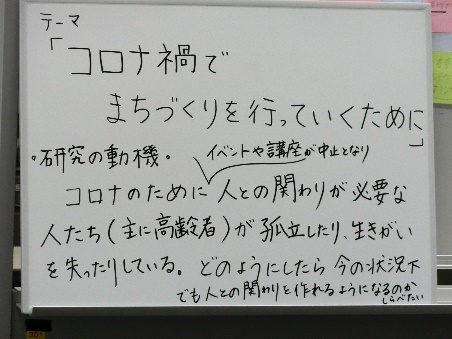 テーマ
「コロナ禍で
まちづくりを行っていくために」
・研究の動機・
イベントや講座が中止となり
コロナのために人との関わりが必要な
人たち(主に高齢者)が孤立したり、生きがい
を失ったりしている。どのようにしたら今の状況下
でも人との関わりを作れるようになるのか
しらべたい